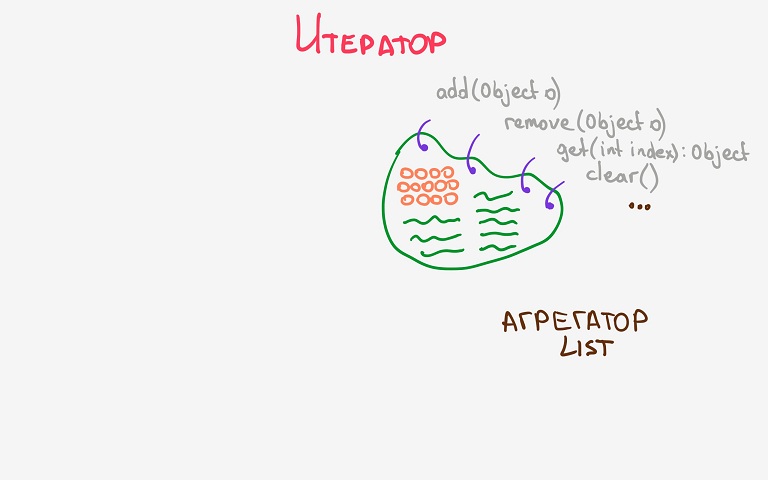 Итератор
add(Object o)
remove(Object o)
get(int index): Object
clear()
...
АГРЕГАТОР
LIST